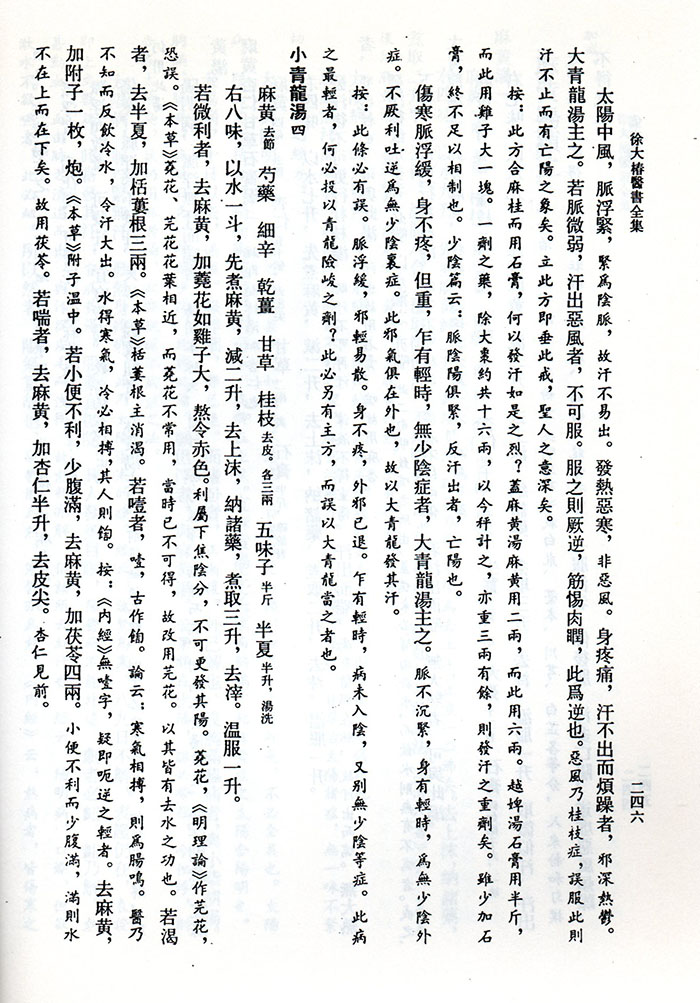 徐大椿醫書全集
二四六
太陽中風，脈浮緊，緊爲陰脈，故汗不易出。發熱惡寒，非惡風。身疼痛，汗不出而煩躁者，邪深熱鬱。
大青龍湯主之。若脈微弱，汗出惡風者，不可服。服之則厥逆，筋惕肉瞤，此爲逆也。惡風乃桂枝症，誤服此則
汗不止而有亡陽之象矣。立此方即垂此戒，聖人之意深矣。
按：此方合麻桂而用石膏，何以發汗如是之烈？蓋麻黄湯麻黄用二兩，而此用六兩。越婢湯石膏用半斤，
而此用雞子大一塊。一劑之藥，除大棗約共十六兩，以今秤計之，亦重三兩有餘，則發汗之重劑矣。雖少加石
膏，終不足以相制也。少陰篇云：脈陰陽俱緊，反汗出者，亡陽也。
傷寒脈浮緩，身不疼，但重，乍有輕時，無少陰症者，大青龍湯主之。脈不沉緊，身有輕時，爲無少陰外
症。不厥利吐逆爲無少陰裏症。此邪氣俱在外也，故以大青龍發其汗。
按：此條必有誤。脈浮緩，邪輕易散。身不疼，外邪已退。乍有輕時，病未入陰，又别無少陰等症。此病
之最輕者，何必投以青龍險峻之劑？此必另有主方，而誤以大青龍當之者也。
小青龍湯四
麻黄去節　芍藥　細辛　乾薑　甘草　桂枝去皮。各三兩　五味子半斤　半夏半升，湯洗
右八味，以水一斗，先煮麻黄，減二升，去上沫，納諸藥，煮取三升，去滓。温服一升。
若微利者，去麻黄，加蕘花如雞子大，熬令赤色。利屬下焦陰分，不可更發其陽。蕘花，《明理論》作芫花，
恐誤。《本草》蕘花、芫花花葉相近，而蕘花不常用，當時已不可得，故改用芫花。以其皆有去水之功也。若渴
者，去半夏，加栝蔞根三兩。《本草》栝蔞根主消渴。若噎者，噎，古作䭇。論云：寒氣相搏，則爲腸鳴。醫乃
不知而反飲冷水，令汗大出。水得寒氣，冷必相搏，其人則䭇。按：《内經》無噎字，疑即呃逆之輕者。去麻黄，
加附子一枚，炮。《本草》附子温中。若小便不利，少腹滿，去麻黄，加茯苓四兩。小便不利而少腹滿，滿則水
不在上而在下矣。故用茯苓。若喘者，去麻黄，加杏仁半升，去皮尖。杏仁見前。